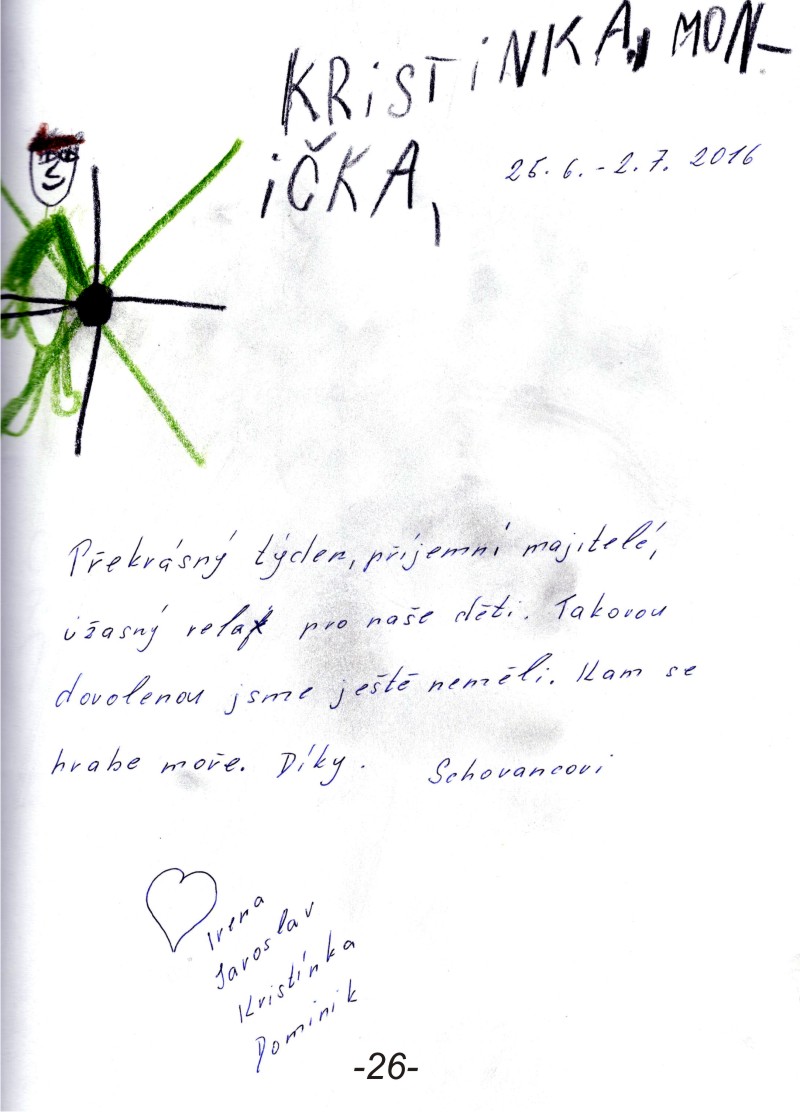 KRiSTiNKA, MON-
iČKA,
25. 6. - 2. 7. 2016
Překrásný týden, příjemní majitelé,
úžasný relax pro naše děti. Takovou
dovolenou jsme ještě neměli. Kam se
hrabe moře. Díky. Schovancovi
Irena
Jaroslav
Kristínka
Dominik
-26-